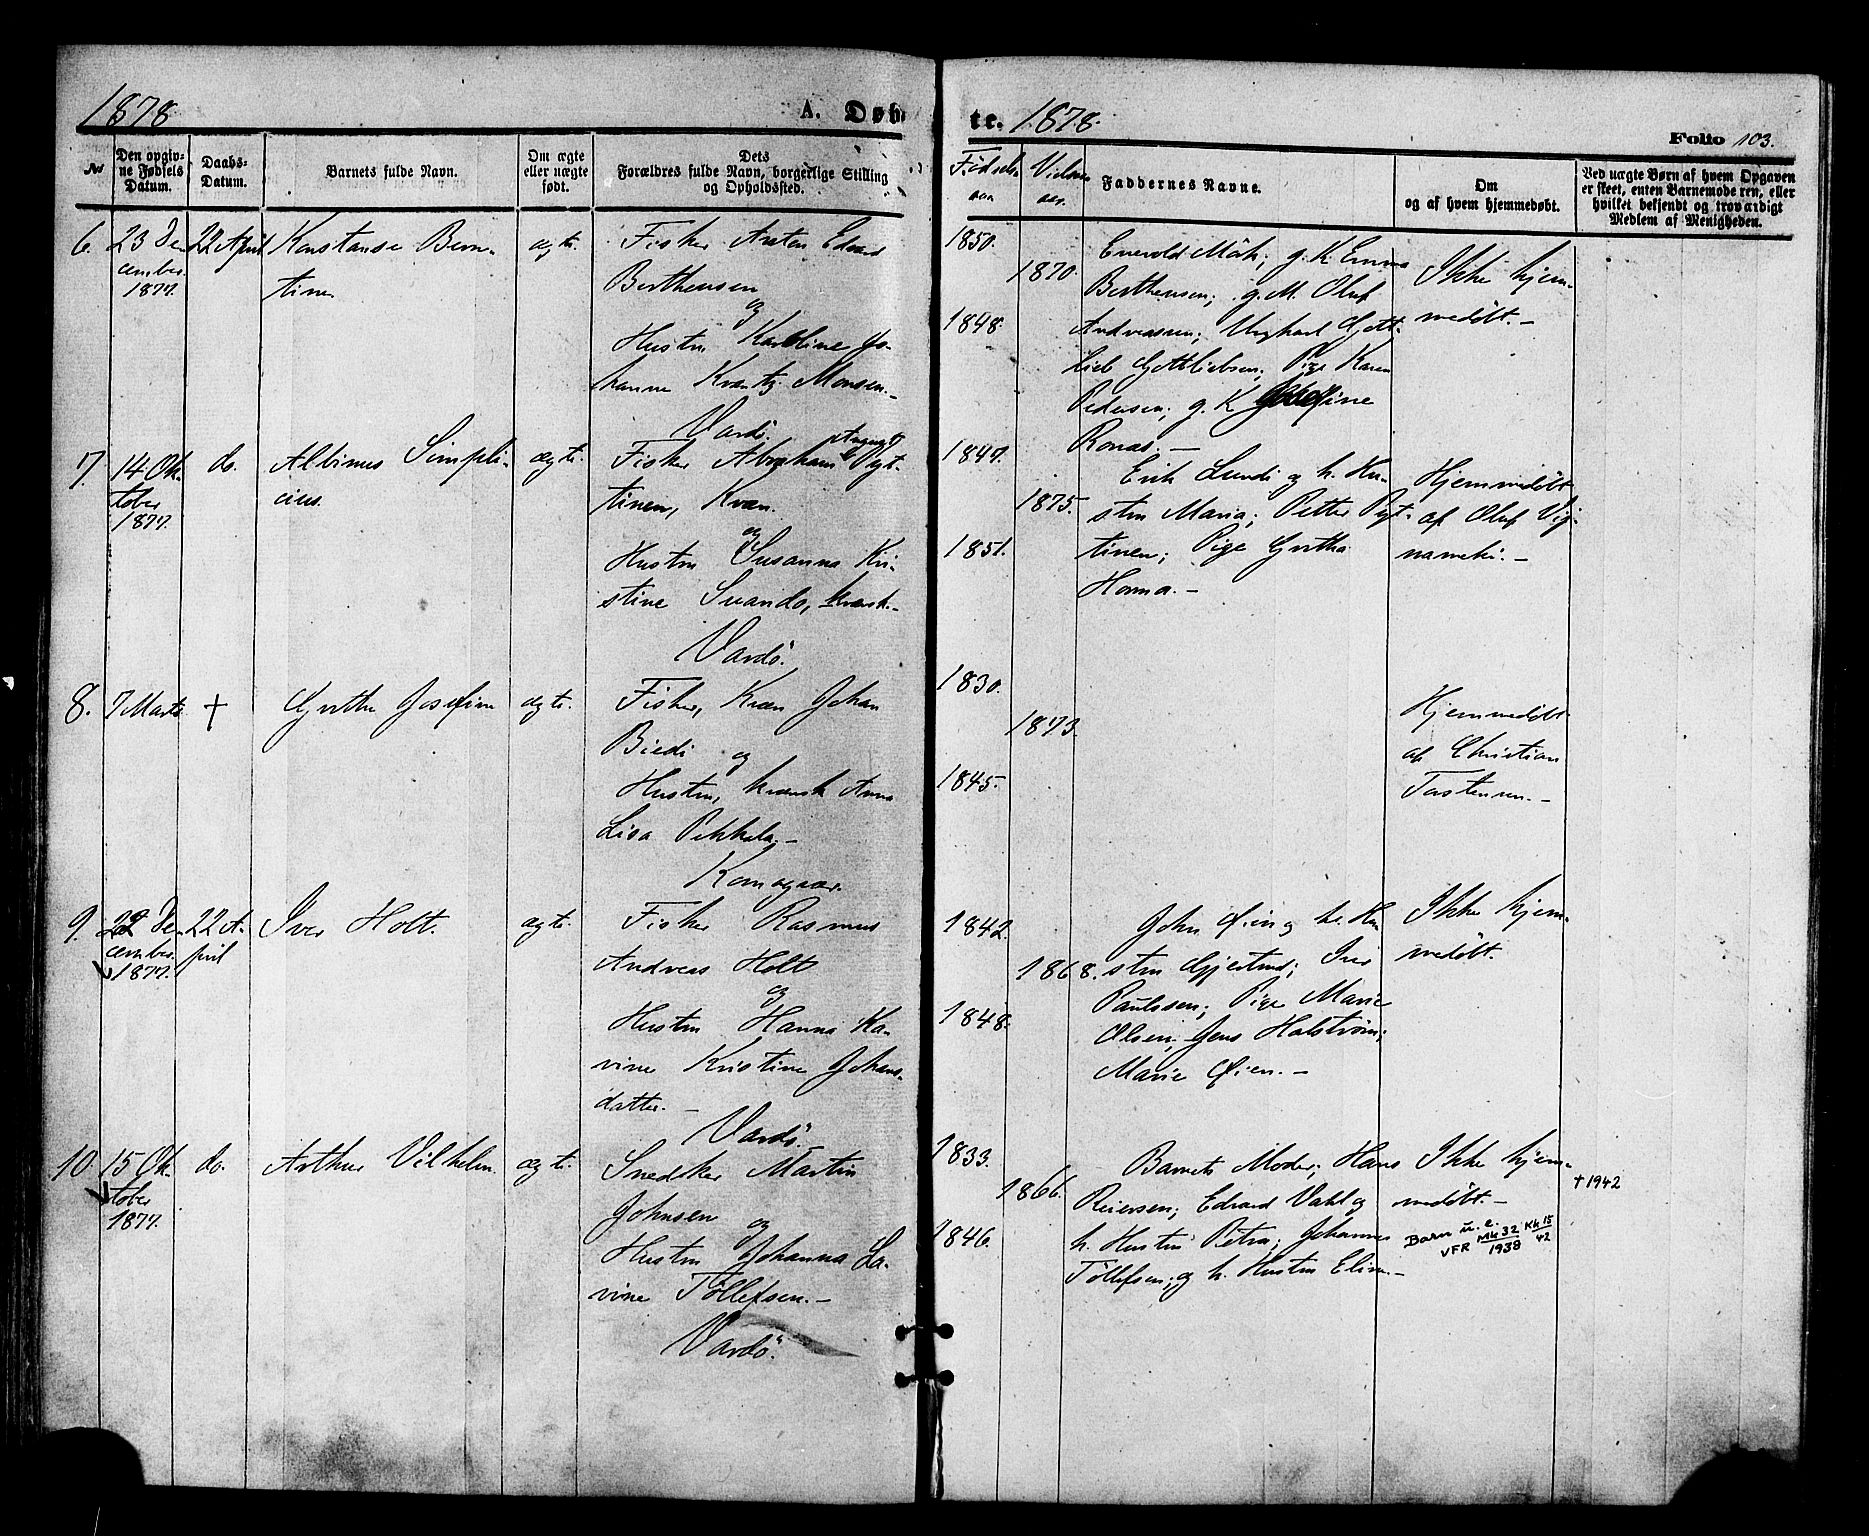 1878
A. Døb-
te. 1878.
Folio 103.
№
Den opgiv-
ne Fødsels
Datum.
Daabs-
Datum.
Barnets fulde Navn.
Om ægte
eller uægte
født.
Dets
Forældres fulde Navn, borgerlige Stilling
og Opholdssted.
Fødsels
aar
Vielses
aar.
Faddernes Navne.
Om
og af hvem hjemmedøbt.
Ved uægte Børn af hvem Opgaven
er skeet, enten Barnemoderen, eller
hvilket bekjendt og troværdigt
Medlem af Menigheden.
6.
23 De-
cember
1877.
22 April
Konstanse Bern-
tine.
ægte
Fisker Anton Edvard
Berthensen
og
Hustru Karoline Jo-
hanna Kvantz Monsen.-
Vardö.
1850.
1870.
1848.
Enevold Mörk; g. K. Emma
Berthensen; g. M. Oluf
Andreassen; Ungkarl Gott-
lieb Gottliebsen; Pige Karen
Pedersen; g. K Josefine
Ronas.-
Ikke hjem-
medöbt.-
7.
14 Ok-
tober
1877.
do.
Albinus Simpli-
cius.
ægte.
Fisker Abraham August Pyt-
tinen, Kvæn.
og
Hustru Susanna Kri-
stine Suando, kvænsk.-
Vardö.
1847.
1875.
1851.
Erik Lundi og h. Hu-
stru Maria; Petter Pyt-
tinen; Pige Gretha
Honna.-
Hjemmedöbt
af Oluf Vig-
nameki.-
8.
7 Marts
†
Grethe Josefine
ægte.
Fisker, Kvæn Johan
Biedi og
Hustru, kvænsk Anna
Lisa Pekkela.-
Komagvær.
1830.
1873.
1845.
Hjemmedöbt
af Christian
Torstensen.-
9.
22 De-
cember
1877.
22 A-
pril
Iver Holt.
ægte.
Fisker Rasmus
Andreas Holt
og
Hustru Hanna Ka-
rine Kristine Johans-
datter.-
Vardö.
1842.
1868.
1848.
John Øien og h. Hu-
stru Gjertrud; Iver
Paulssen; Pige Marie
Olsen; Jens Halström;
Marie Øien.-
Ikke hjem-
medöbt.
10.
15 Ok-
tober
1877.
do.
Arthur Vilhelm
ægte.
Snedker Martin
Johnsen
og
Hustru Johanna La-
vine Töllefsen.-
Vardö.
1833.
1866.
1846.
Barnets Moder; Hans
Reiersen; Edvard Vahl og
h. Hustru Petra; Johannes
Töllefsen; og h. Hustru Eline.-
Ikke hjem-
medöbt.-
† 1942
Barn u. e.
VFR Mk 32/1938 Kk 15/42